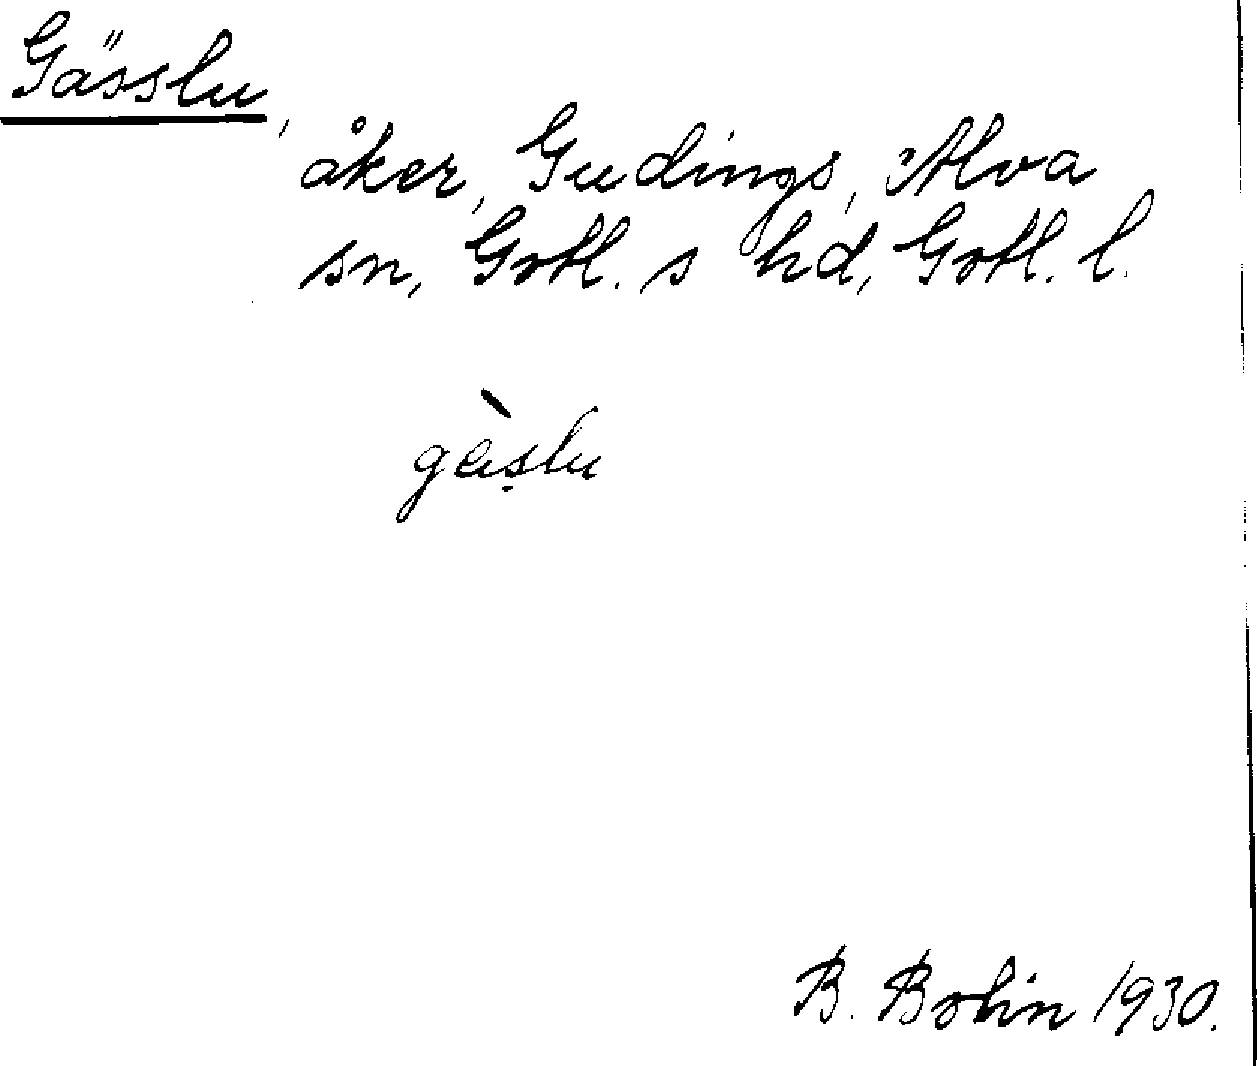 Gässlu,
åker, Gudings, Alva
sn, Gotl. s hd, Gotl. l.
gä̀sḷu
B. Bohin 1930.